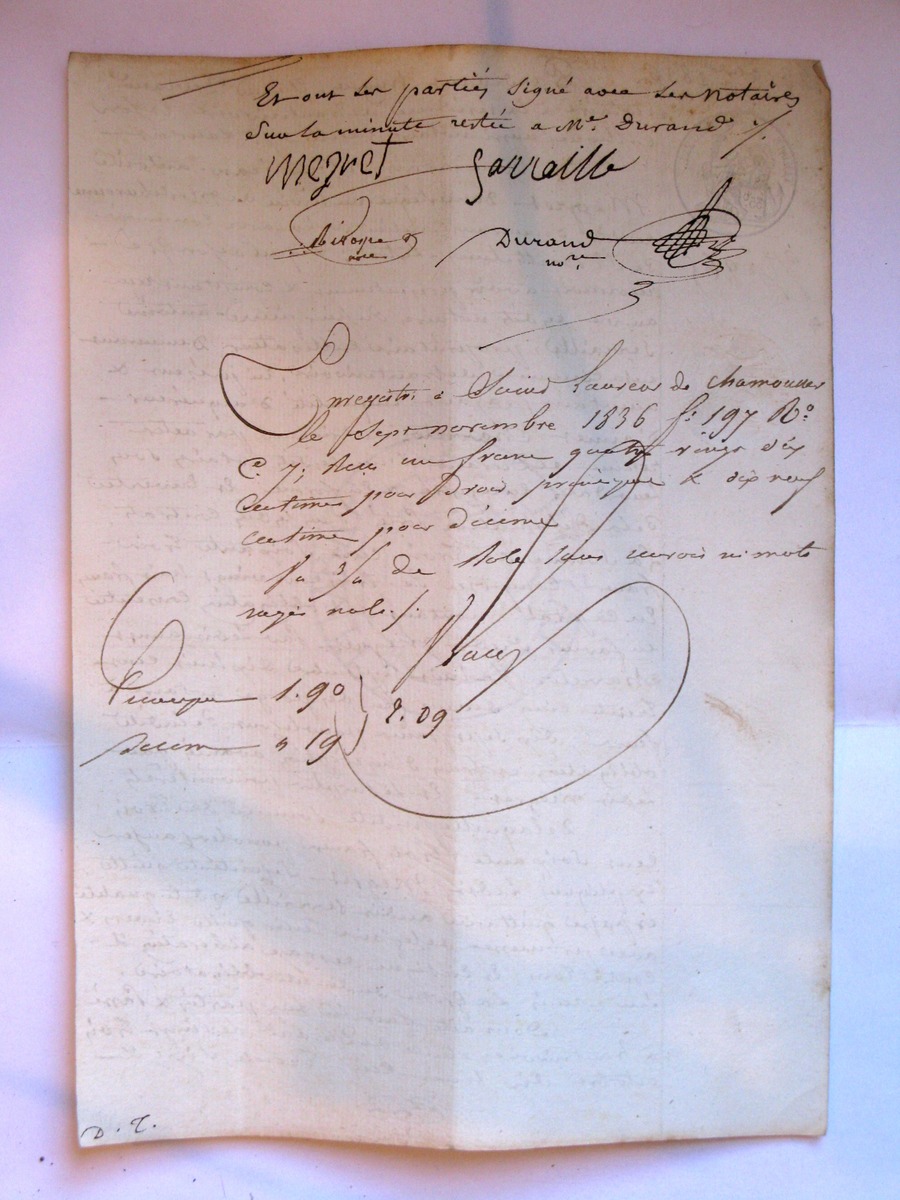 Et ont les parties signé avec les notaires
Sur la minute restée a Me. Durand /.
Megret Sarraille
nre
Durand
nore
Enregistré a Saint Laurent de chamousset
le Sept novembre 1836 fo. 197 Ro.
C. 7; Reçu un franc quatre vingt dix
centime pour Droit principal & dix neuf
centime pour décime
de Role sans renvoi ni mots
rayés nuls /.
Principal 1.90
2.09
Decime " 19
D. T.